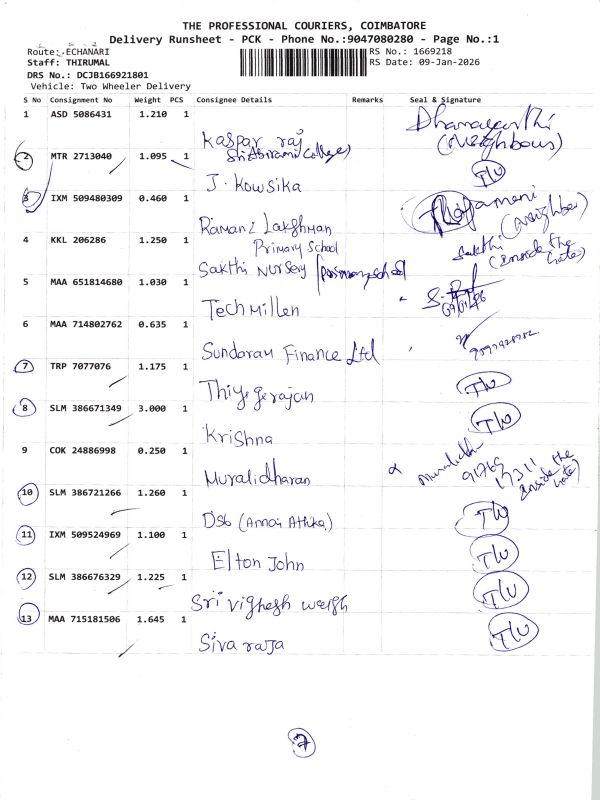 THE PROFESSIONAL COURIERS, COIMBATORE
Delivery Runsheet - PCK - Phone No.:9047080280 - Page No.:1
Route: ECHANARI
RS No.: 1669218
Staff: THIRUMAL
RS Date: 09-Jan-2026
DRS No.: DCJB166921801
Vehicle: Two Wheeler Delivery
S No Consignment No Weight PCS Consignee Details Remarks Seal & Signature
1 ASD 5086431 1.210 1
Kaspar raj
(Neighbour)
2 MTR 2713040 1.095 1
J. Kowsika
T/W
3 IXM 509480309 0.460 1
Ramani Lakshman
(Neighber)
4 KKL 206286 1.250 1
Primary School
Sakthi Nursery
Sakthi (Inside the Gate)
5 MAA 651814680 1.030 1
Tech Millen
6 MAA 714802762 0.635 1
Sundaram Finance Ltd
7 TRP 7077076 1.175 1
Thiyagarajan
T/W
8 SLM 386671349 3.000 1
Krishna
T/W
9 COK 24886998 0.250 1
Muralidharan
91769
17311
(Inside the Gate)
10 SLM 386721266 1.260 1
T/W
11 IXM 509524969 1.100 1
Elton John
T/W
12 SLM 386676329 1.225 1
Sri vighesh weigh
T/W
13 MAA 715181506 1.645 1
Siva raja
T/W